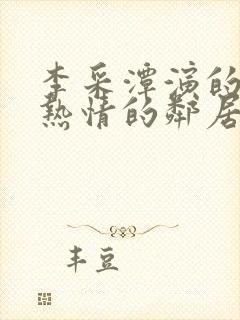 李采潭演的
热情的邻居
丰豆